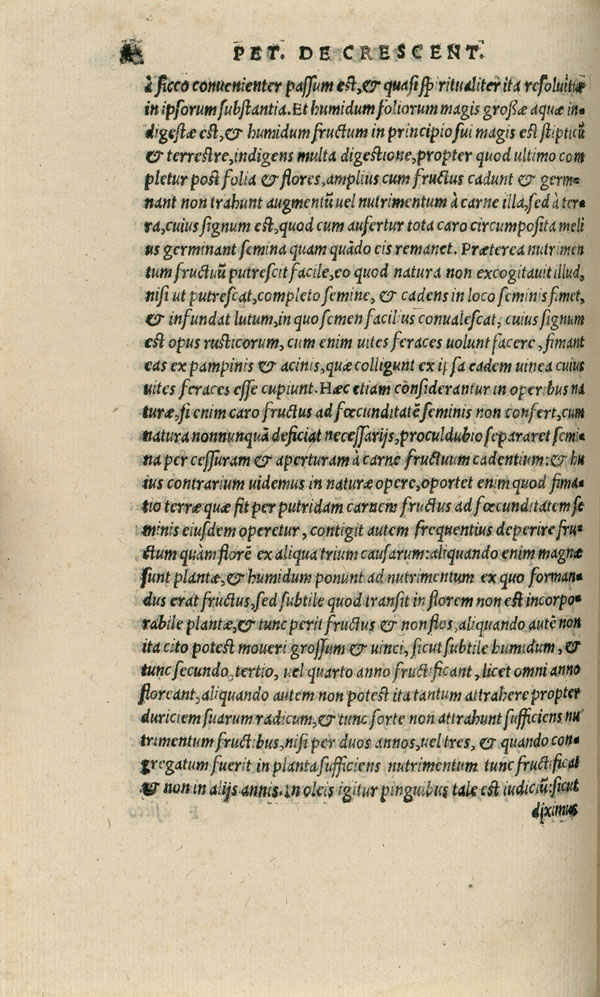 PET. DE CRESCENT.
à ſicco conuenienter paſſum eſt,& quaſi ſpiritualiter ita reſoluitur
in ipſorum ſubſtantia. Et humidum foliorum magis groſſæ aquæ in-
digeſtæ eſt,& humidum fructum in principio ſui magis eſt ſtipticũ
& terreſtre,indigens multa digeſtione,propter quod ultimo com
pletur poſt folia & flores,amplius cum fructus cadunt & germi-
nant non trahunt augmentũ uel nutrimentum à carne illa,ſed à ter-
ra,cuius ſignum eſt,quod cum aufertur tota caro circumpoſita meli
us germinant ſemina quam quãdo eis remanet. Præterea nutrimen
tum fructuũ putreſcit facile,eo quod natura non excogitauit illud,
niſi ut putreſcat,completo ſemine, & cadens in loco ſeminis fimet,
& infundat lutum,in quo ſemen facilius conualeſcat, cuius ſignum
eſt opus ruſticorum, cum enim uites feraces uolunt facere, fimant
eas ex pampinis & acinis,quæ colligunt ex ipſa eadem uinea cuius
uites feraces eſſe cupiunt. Hæc etiam cõſiderantur in operibus na
turæ,ſi enim caro fructus ad fœcunditatẽ ſeminis non confert,cum
natura nonnunquã deficiat neceſſarijs,proculdubio ſepararet ſemi-
na per ceſſuram & aperturam à carne fructuum cadentium:& hu
ius contrarium uidemus in naturæ opere,oportet enim quod fima-
tio terræ quæ fit per putridam carnem fructus ad fœcunditatem ſe
minis eiuſdem operetur, contigit autem frequentius deperire fru-
ctum quàm florẽ ex aliqua trium cauſarum:aliquando enim magnæ
ſunt plantæ,& humidum ponunt ad nutrimentum ex quo forman-
dus erat fructus,ſed ſubtile quod tranſit in florem non eſt incorpo-
rabile plantæ,& tunc perit fructus & non flos,aliquando autẽ non
ita cito poteſt moueri groſſum & uinci, ſicut ſubtile humidum, &
tunc ſecundo,tertio, uel quarto anno fructificant,licet omni anno
floreant,aliquando autem non poteſt ita tantum attrahere propter
duriciem ſuarum radicum,& tunc forte non attrahunt ſufficiens nu
trimentum fructibus,niſi per duos annos,uel tres, & quando con-
gregatum fuerit in planta ſufficiens nutrimentum tunc fructificat
& non in alijs annis. In oleis igitur pinguibus tale eſt iudiciũ:ſicut
diximus